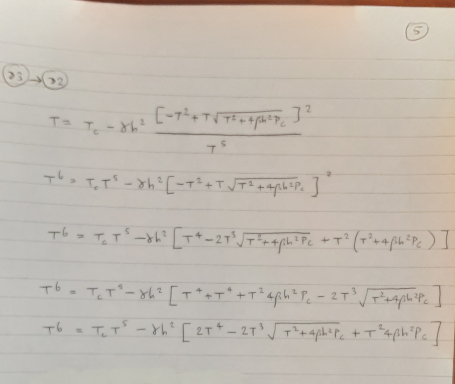 5
23 → 22
T = T_c - γh² [-T² + T√(T² + 4βh²P_c)]² / T⁵
T⁶ = T_c T⁵ - γh² [-T² + T√(T² + 4βh²P_c)]²
T⁶ = T_c T⁵ - γh² [T⁴ - 2T³√(T² + 4βh²P_c) + T²(T² + 4βh²P_c)]
T⁶ = T_c T⁵ - γh² [T⁴ + T⁴ + T²4βh²P_c - 2T³√(T² + 4βh²P_c)]
T⁶ = T_c T⁵ - γh² [2T⁴ - 2T³√(T² + 4βh²P_c) + T²4βh²P_c]